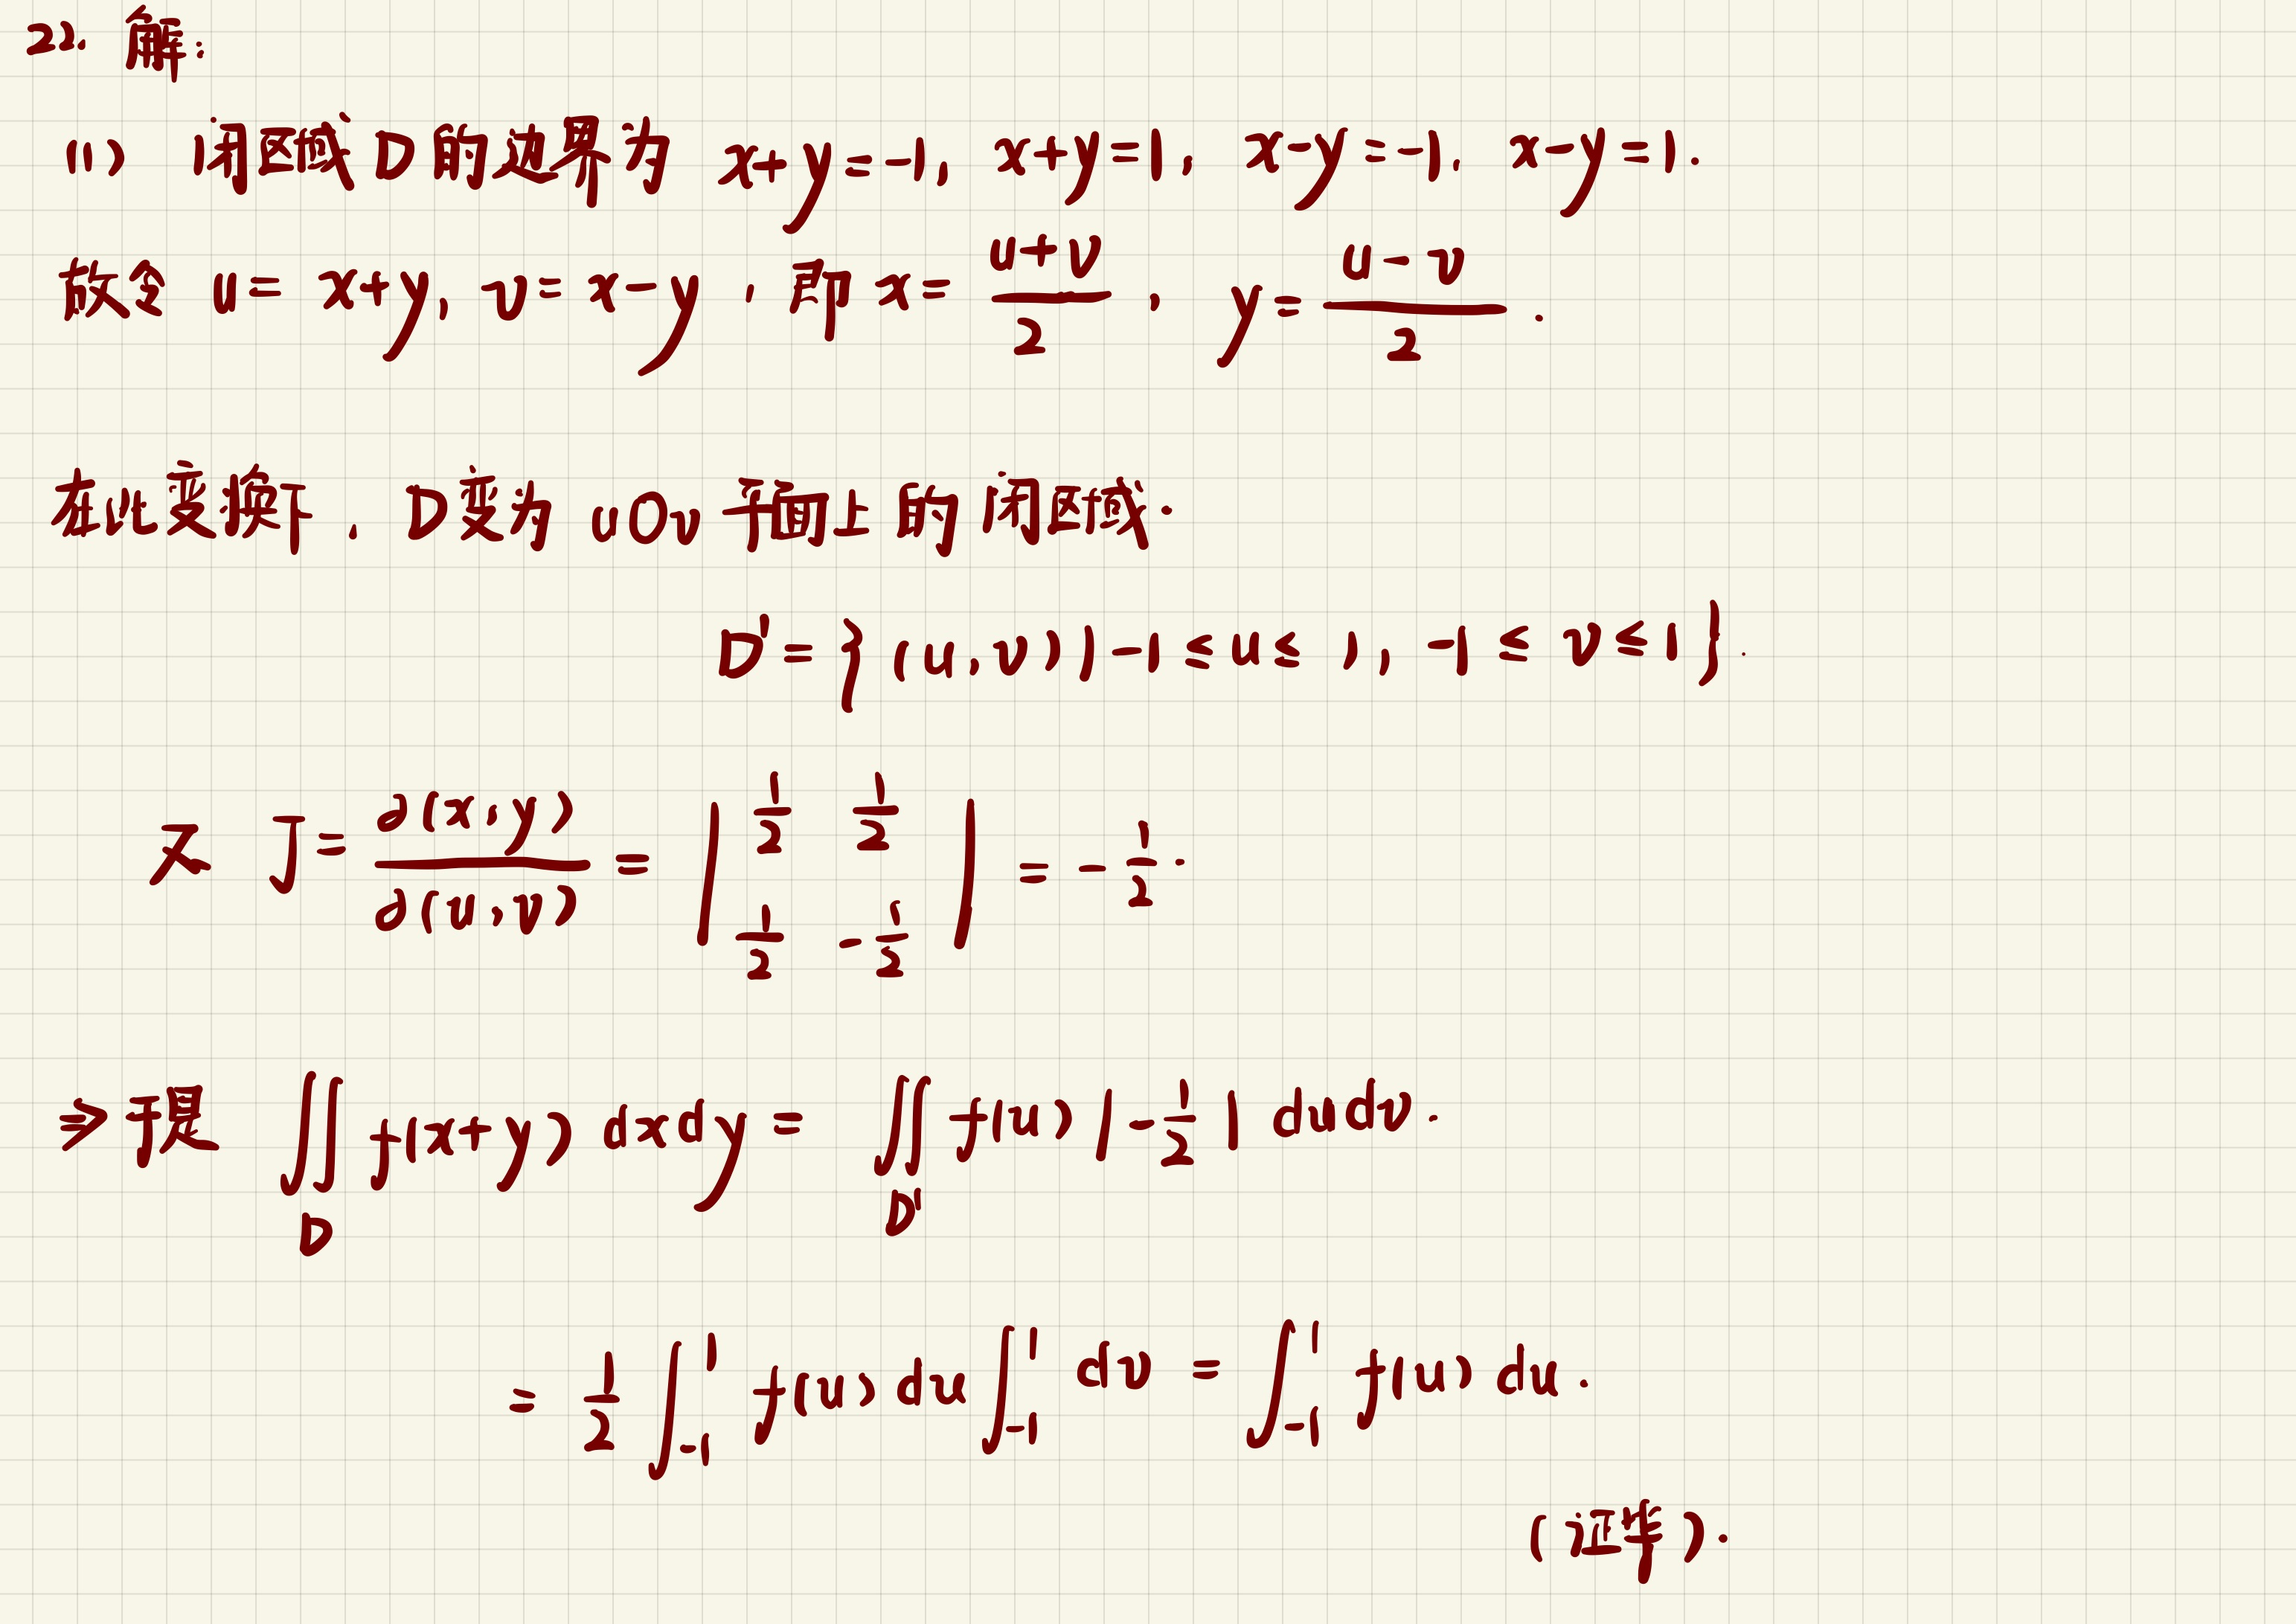 22. 解:
(1) 闭区域 D 的边界为 x+y=-1, x+y=1, x-y=-1, x-y=1.
故令 u=x+y, v=x-y, 即 x=\frac{u+v}{2}, y=\frac{u-v}{2}.
在此变换下, D变为 uOv 平面上的闭区域.
D'={(u,v)|-1≤u≤1, -1≤v≤1}.
又 J=\frac{∂(x,y)}{∂(u,v)}=\begin{vmatrix}\frac{1}{2} & \frac{1}{2} \\ \frac{1}{2} & -\frac{1}{2}\end{vmatrix}=-\frac{1}{2}.
⇒ 于是 \iint_{D} f(x+y) dxdy = \iint_{D'} f(u) |-\frac{1}{2}| dudv.
= \frac{1}{2} \int_{-1}^{1} f(u) du \int_{-1}^{1} dv = \int_{-1}^{1} f(u) du.
(证毕).